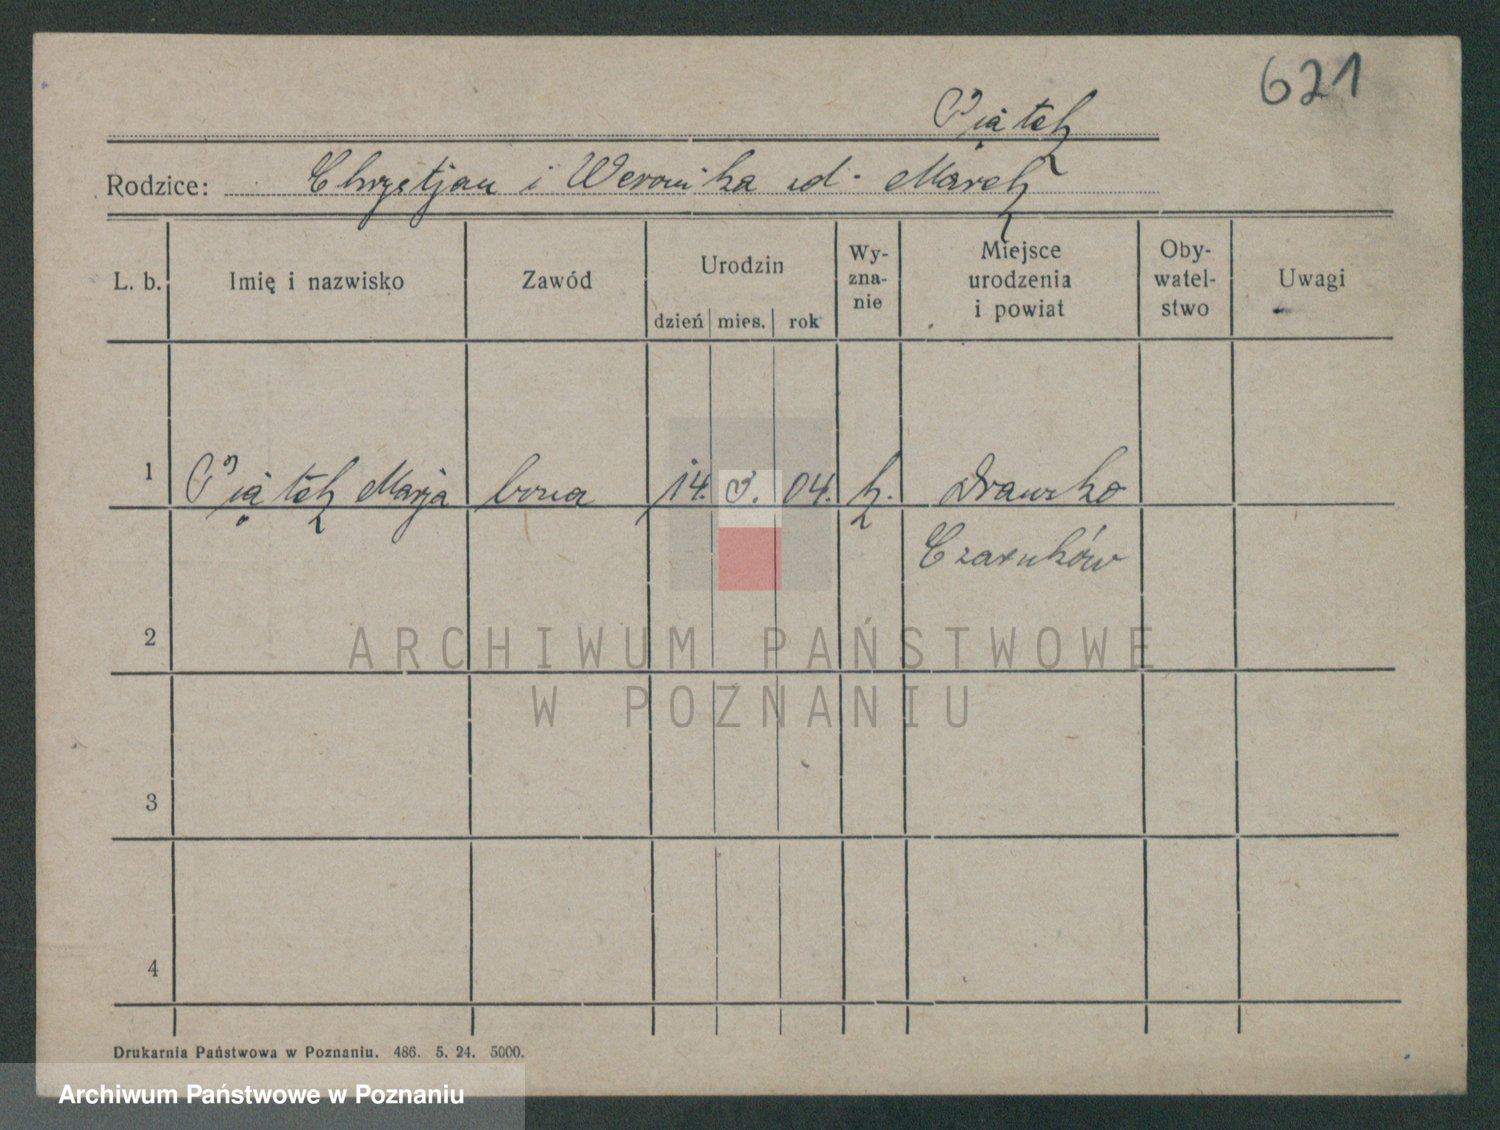 621
Piątek
Rodzice: Chrystjan i Weronika ud. Marek
L. b. Imię i nazwisko Zawód Urodzin dzień mies. rok Wy-zna-nie Miejsce urodzenia i powiat Oby-watel-stwo Uwagi
1 Piątek Marja bona 14. 3. 04. k. Drawsko
Czarnków
2
3
4
Drukarnia Państwowa w Poznaniu. 486. 5. 24. 5000.
ARCHIWUM PAŃSTWOWE
W POZNANIU
Archiwum Państwowe w Poznaniu